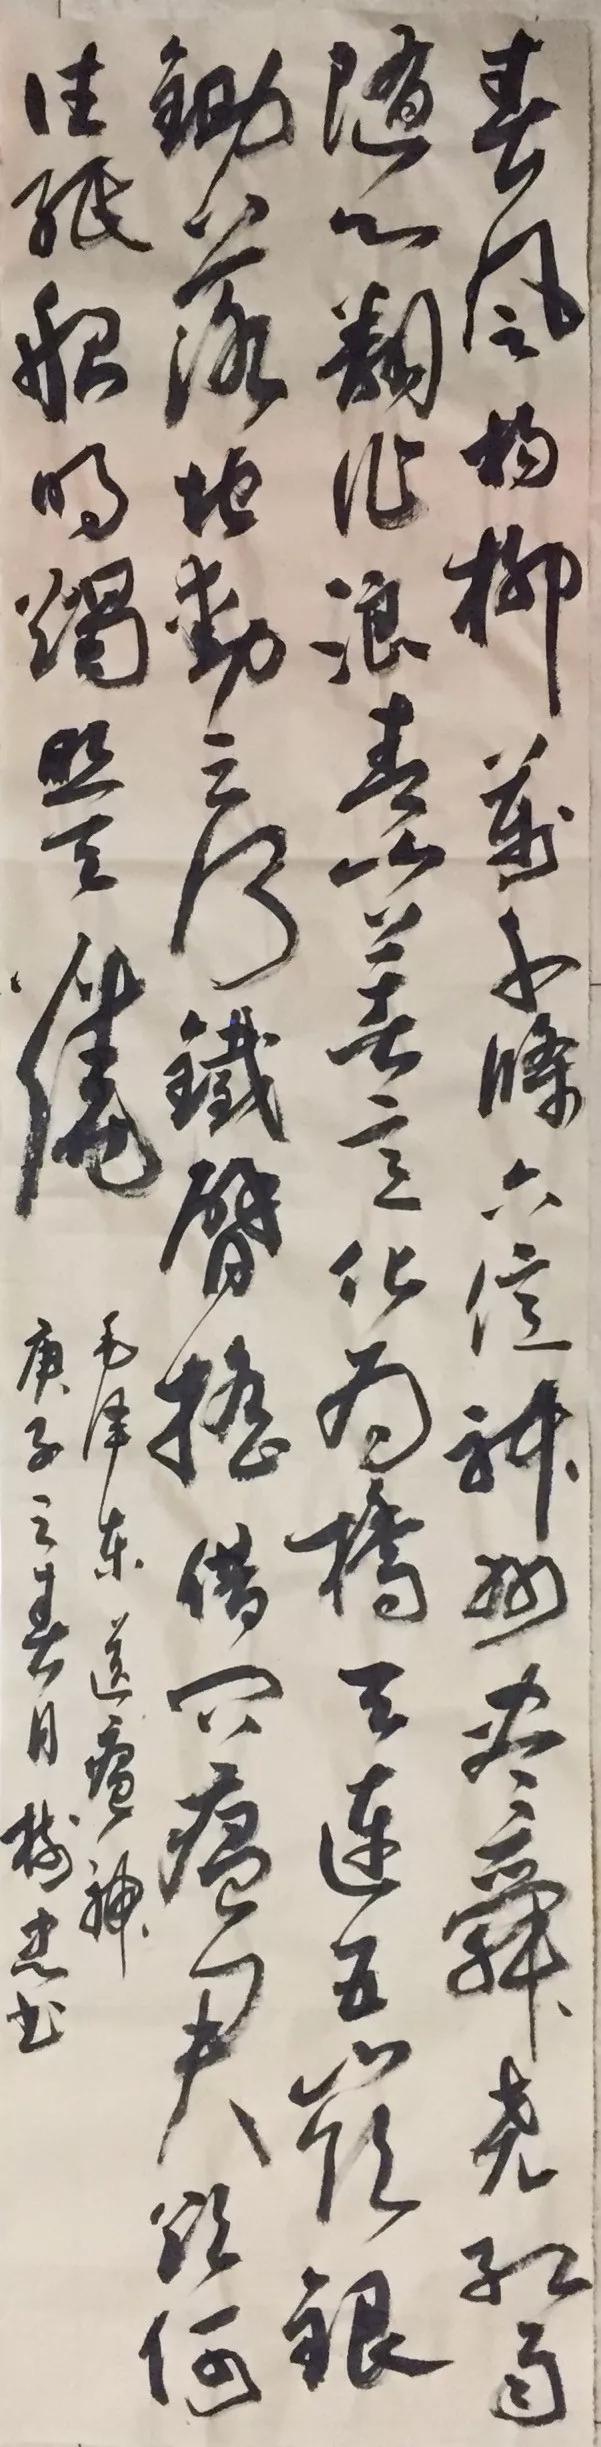 春风杨柳萬千條六億神州尽舜尧红雨
随心翻作浪青山着意化为橋天连五岭銀
鋤落地動三河鐵臂摇借问瘟君欲何
往紙船明燭照天燒
毛泽东送瘟神
庚子之春月树忠书